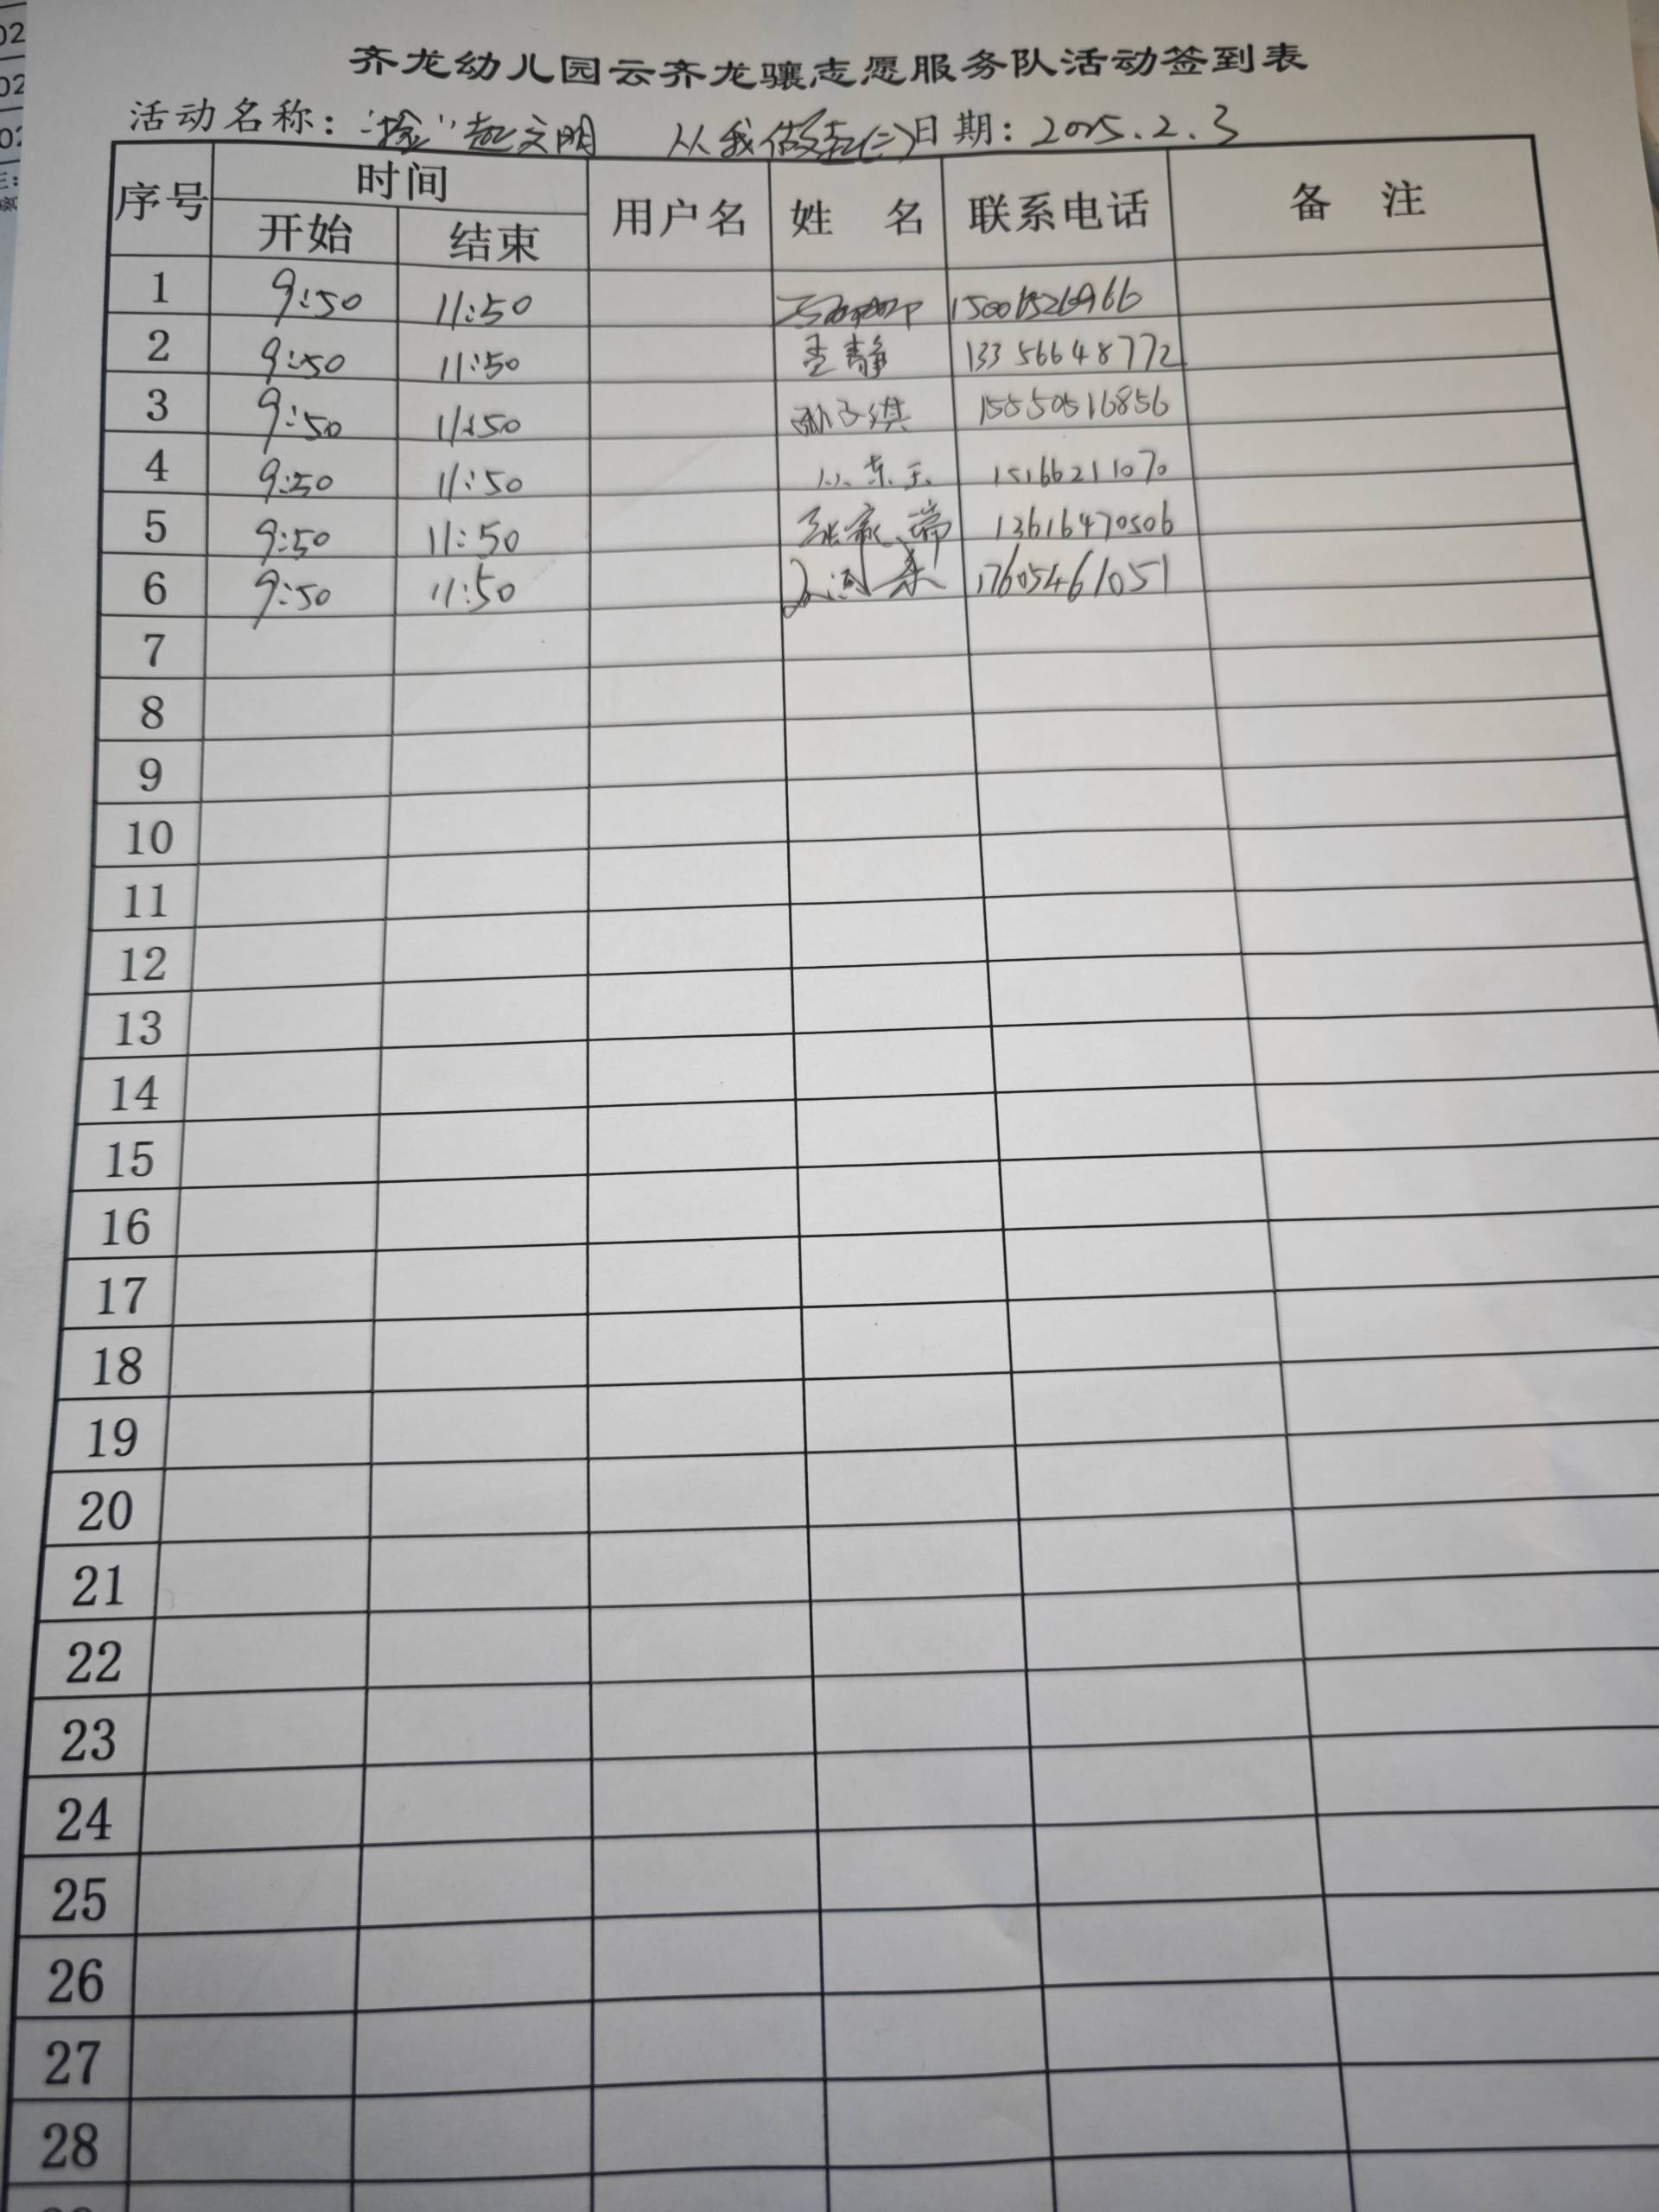 齐龙幼儿园云齐龙骧志愿服务队活动签到表
活动名称："捡"起文明 从我做起(二) 日期：2025.2.3
序号 时间 用户名 姓 名 联系电话 备 注
开始 结束
1 9:50 11:50
2 9:50 11:50 李静 13356648772
3 9:50 11:50 孙子淇 15550516856
4 9:50 11:50 15166211070
5 9:50 11:50 13616470506
6 9:50 11:50 17605461051
7
8
9
10
11
12
13
14
15
16
17
18
19
20
21
22
23
24
25
26
27
28